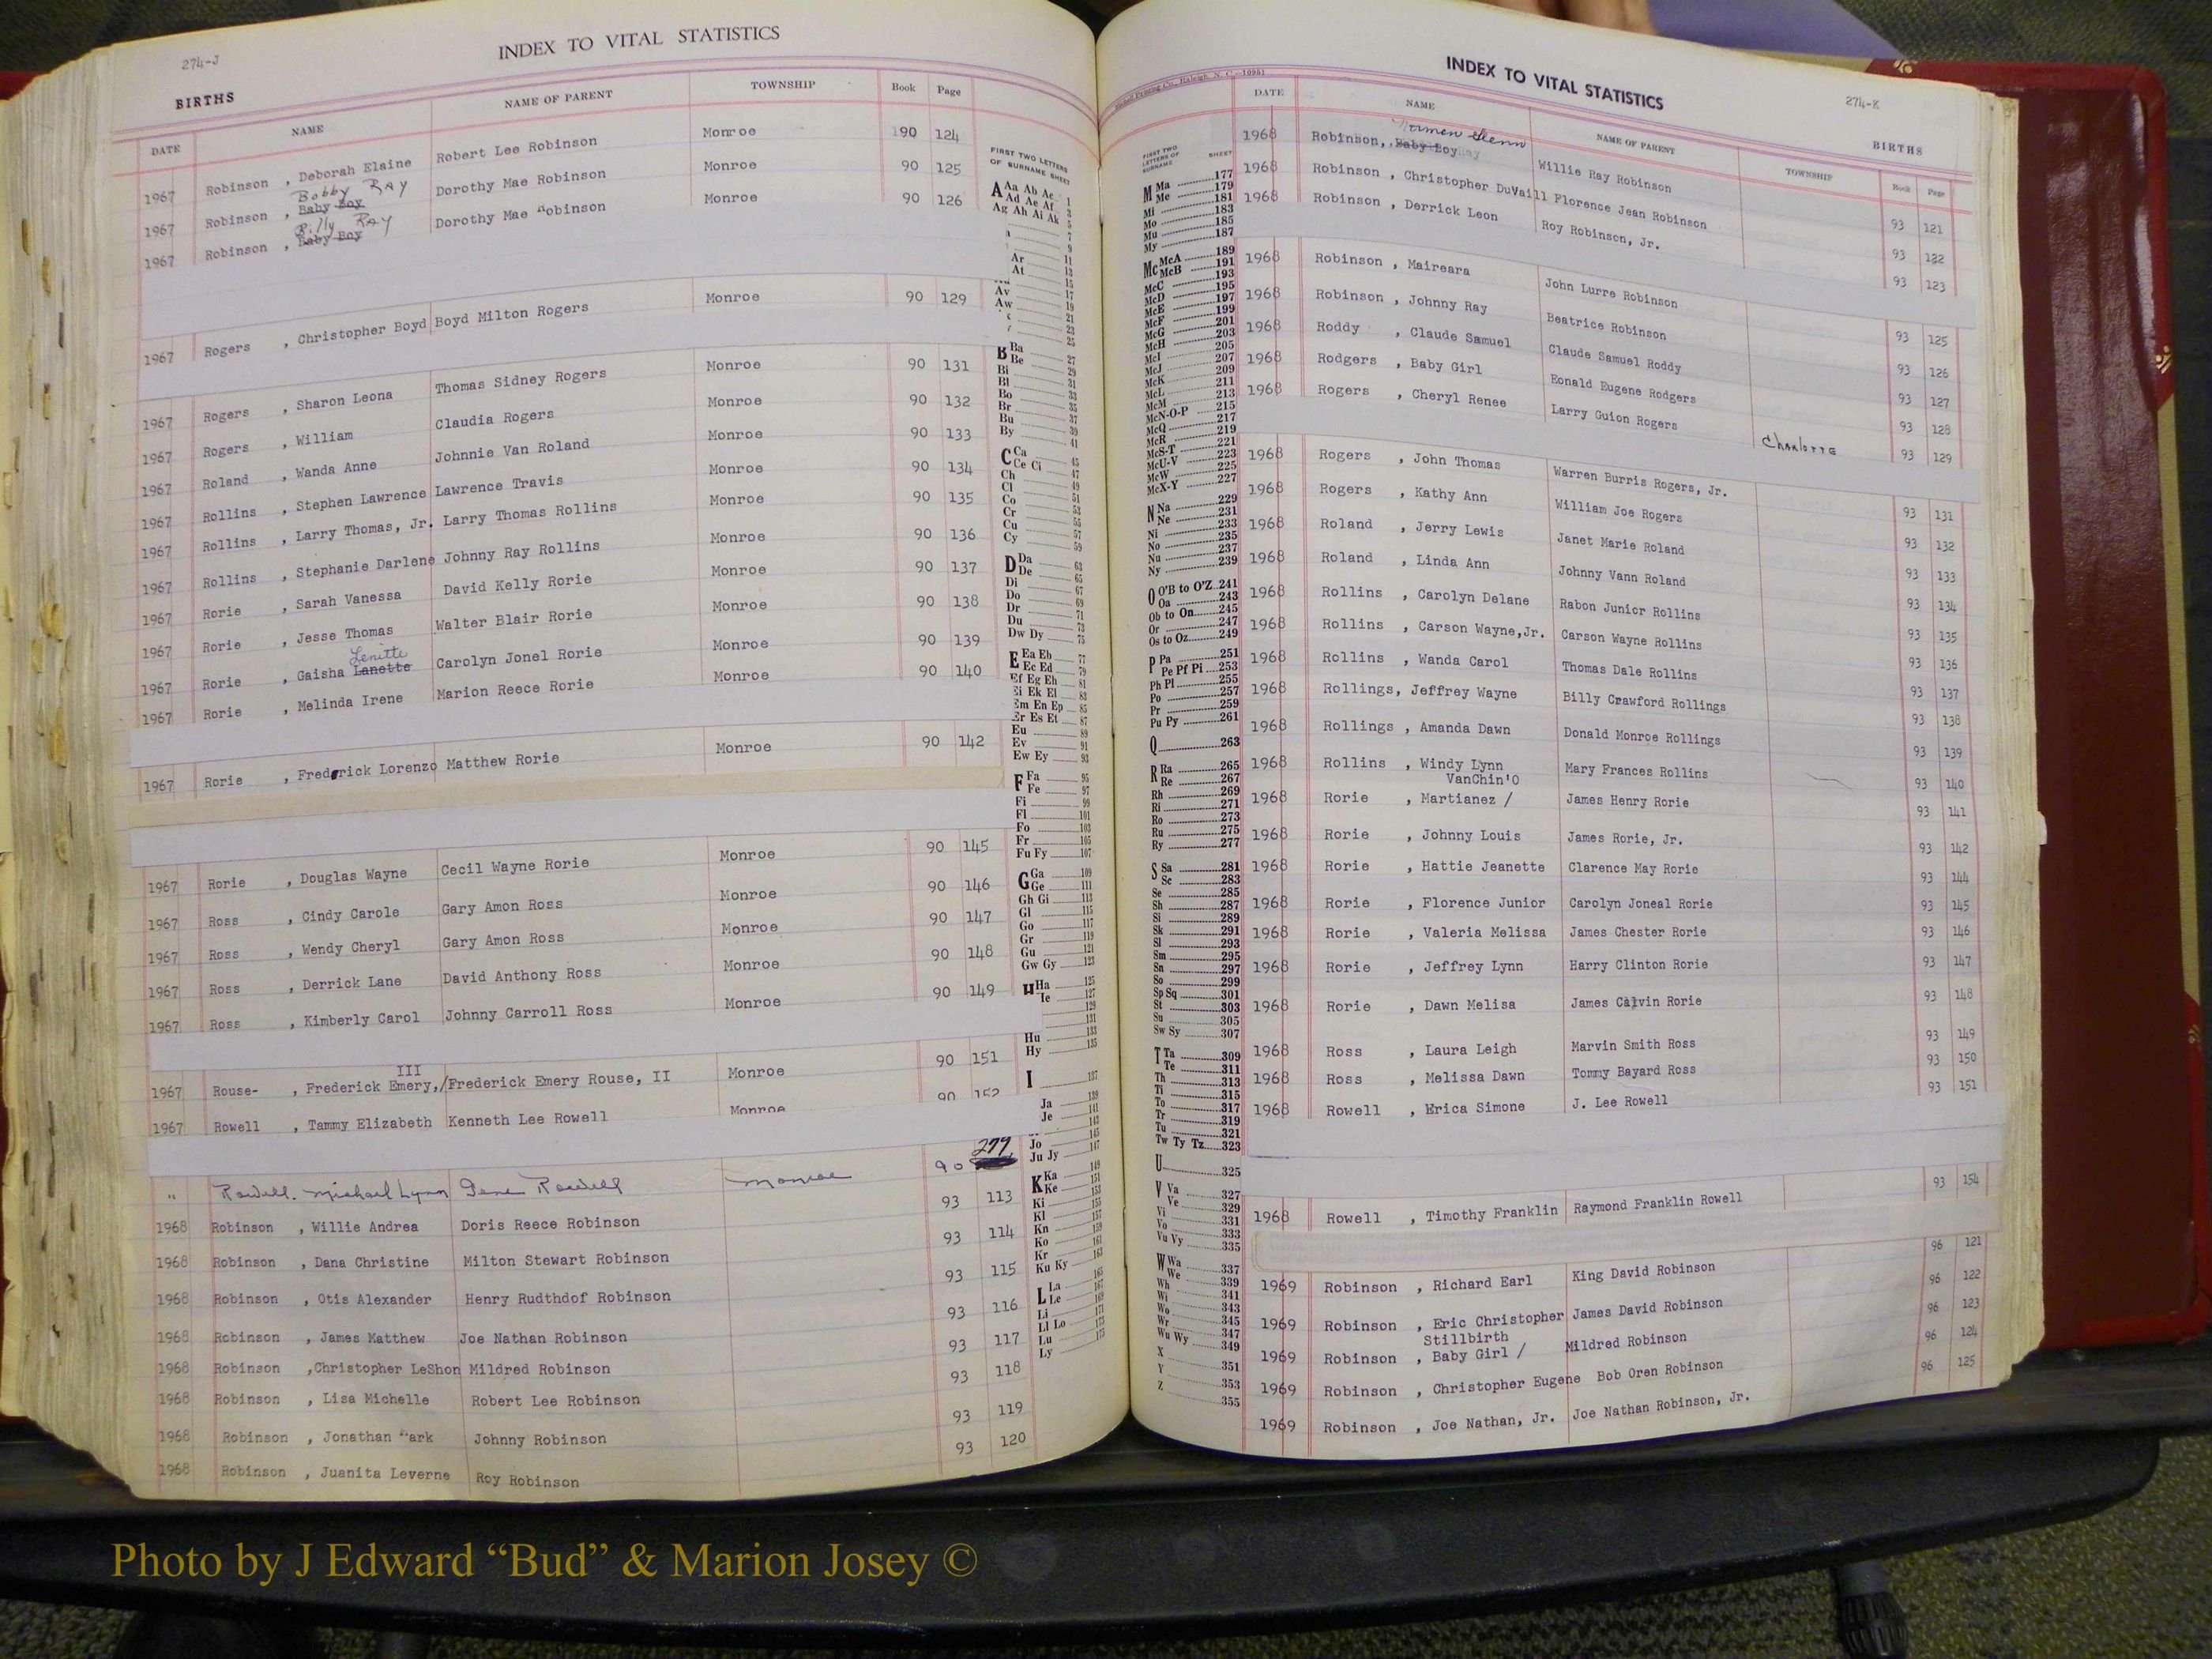 274-J
INDEX TO VITAL STATISTICS
BIRTHS
DATE NAME NAME OF PARENT TOWNSHIP Book Page
1967 Robinson , Deborah Elaine Robert Lee Robinson Monroe 90 124
Bobby Ray
1967 Robinson , Baby Boy Dorothy Mae Robinson Monroe 90 125
Billy Ray
1967 Robinson , Baby Boy Dorothy Mae Robinson Monroe 90 126
1967 Rogers , Christopher Boyd Boyd Milton Rogers Monroe 90 129
1967 Rogers , Sharon Leona Thomas Sidney Rogers Monroe 90 131
1967 Rogers , William Claudia Rogers Monroe 90 132
1967 Roland , Wanda Anne Johnnie Van Roland Monroe 90 133
1967 Rollins , Stephen Lawrence Lawrence Travis Monroe 90 134
1967 Rollins , Larry Thomas, Jr. Larry Thomas Rollins Monroe 90 135
1967 Rollins , Stephanie Darlene Johnny Ray Rollins Monroe 90 136
1967 Rorie , Sarah Vanessa David Kelly Rorie Monroe 90 137
1967 Rorie , Jesse Thomas Walter Blair Rorie Monroe 90 138
Lenitte
1967 Rorie , Gaisha Lanette Carolyn Jonel Rorie Monroe 90 139
1967 Rorie , Melinda Irene Marion Reece Rorie Monroe 90 140
1967 Rorie , Frederick Lorenzo Matthew Rorie Monroe 90 142
1967 Rorie , Douglas Wayne Cecil Wayne Rorie Monroe 90 145
1967 Ross , Cindy Carole Gary Amon Ross Monroe 90 146
1967 Ross , Wendy Cheryl Gary Amon Ross Monroe 90 147
1967 Ross , Derrick Lane David Anthony Ross Monroe 90 148
1967 Ross , Kimberly Carol Johnny Carroll Ross Monroe 90 149
III
1967 Rouse- , Frederick Emery,/Frederick Emery Rouse, II Monroe 90 151
1967 Rowell , Tammy Elizabeth Kenneth Lee Rowell Monroe 90 152
" Rowell. Michael Lynn Gene Rowell Monroe 90 299
1968 Robinson , Willie Andrea Doris Reece Robinson 93 113
1968 Robinson , Dana Christine Milton Stewart Robinson 93 114
1968 Robinson , Otis Alexander Henry Rudthdof Robinson 93 115
1968 Robinson , James Matthew Joe Nathan Robinson 93 116
1968 Robinson ,Christopher LeShon Mildred Robinson 93 117
1968 Robinson , Lisa Michelle Robert Lee Robinson 93 118
1968 Robinson , Jonathan Mark Johnny Robinson 93 119
1968 Robinson , Juanita Leverne Roy Robinson 93 120
FIRST TWO LETTERS
OF SURNAME SHEET
A Aa Ab Ac 1
Ad Ae Af 3
Ag Ah Ai Ak 5
7
9
Ar 11
At 13
15
Av 17
Aw 19
21
23
25
B Ba 27
Be 29
Bi 31
Bl 33
Bo 35
Br 37
Bu 39
By 41
C Ca 45
Ce Ci 47
Ch 49
Cl 51
Co 53
Cr 55
Cu 57
Cy 59
D Da 63
De 65
Di 67
Do 69
Dr 71
Du 73
Dw Dy 75
E Ea Eb 77
Ec Ed 79
Ef Eg Eh 81
Ei Ek El 83
Em En Ep 85
Er Es Et 87
Eu 89
Ev 91
Ew Ey 93
F Fa 95
Fe 97
Fi 99
Fl 101
Fo 103
Fr 105
Fu Fy 107
G Ga 109
Ge 111
Gh Gi 113
Gl 115
Go 117
Gr 119
Gu 121
Gw Gy 123
H Ha 125
He 127
129
131
Hu 133
Hy 135
I 137
Ja 139
Je 141
143
Jo 145
Ju Jy 147
K Ka 149
Ke 151
Ki 153
Kl 155
Kn 157
Ko 159
Kr 161
Ku Ky 163
L La 165
Le 167
Li 169
Ll Lo 171
Lu 173
Ly 175
Printing Co., Raleigh, N. C.—10951
INDEX TO VITAL STATISTICS
274-K
BIRTHS
DATE NAME NAME OF PARENT TOWNSHIP Book Page
FIRST TWO LETTERS OF SURNAME SHEET
M Ma 177
Me 179
181
Mi 183
Mo 185
Mu 187
My
Mc McA 189
McB 191
McC 193
McD 195
McE 197
McF 199
McG 201
McH 203
McI 205
McJ 207
McK 209
McL 211
McM 213
McN-O-P 215
McQ 217
McR 219
McS-T 221
McU-V 223
McW 225
McX-Y 227
N Na 229
Ne 231
Ni 233
No 235
Nu 237
Ny 239
O O'B to O'Z 241
Oa 243
Ob to On 245
Or 247
Os to Oz 249
P Pa 251
Pe Pf Pi 253
Ph Pl 255
Po 257
Pr 259
Pu Py 261
Q 263
R Ra 265
Re 267
Rh 269
Ri 271
Ro 273
Ru 275
Ry 277
S Sa 281
Sc 283
Se 285
Sh 287
Si 289
Sk 291
Sl 293
Sm 295
Sn 297
So 299
Sp Sq 301
St 303
Su 305
Sw Sy 307
T Ta 309
Te 311
Th 313
Ti 315
To 317
Tr 319
Tu 321
Tw Ty Tz 323
U 325
V Va 327
Ve 329
Vi 331
Vo 333
Vu Vy 335
W Wa 337
We 339
Wh 341
Wi 343
Wo 345
Wr 347
Wu Wy 349
X 351
Y 353
Z 355
Glenn
1968 Robinson, Baby Boy Willie Ray Robinson 93 121
1968 Robinson , Christopher DuVaill Florence Jean Robinson 93 122
1968 Robinson , Derrick Leon Roy Robinson, Jr. 93 123
1968 Robinson , Maireara John Lurre Robinson 93 125
1968 Robinson , Johnny Ray Beatrice Robinson 93 126
1968 Roddy , Claude Samuel Claude Samuel Roddy 93 127
1968 Rodgers , Baby Girl Eonald Eugene Rodgers 93 128
1968 Rogers , Cheryl Renee Larry Guion Rogers Charlotte 93 129
1968 Rogers , John Thomas Warren Burris Rogers, Jr. 93 131
1968 Rogers , Kathy Ann William Joe Rogers 93 132
1968 Roland , Jerry Lewis Janet Marie Roland 93 133
1968 Roland , Linda Ann Johnny Vann Roland 93 134
1968 Rollins , Carolyn Delane Rabon Junior Rollins 93 135
1968 Rollins , Carson Wayne,Jr. Carson Wayne Rollins 93 136
1968 Rollins , Wanda Carol Thomas Dale Rollins 93 137
1968 Rollings, Jeffrey Wayne Billy Crawford Rollings 93 138
1968 Rollings , Amanda Dawn Donald Monroe Rollings 93 139
1968 Rollins , Windy Lynn Mary Frances Rollins 93 140
VanChin'O
1968 Rorie , Martianez / James Henry Rorie 93 141
1968 Rorie , Johnny Louis James Rorie, Jr. 93 142
1968 Rorie , Hattie Jeanette Clarence May Rorie 93 144
1968 Rorie , Florence Junior Carolyn Joneal Rorie 93 145
1968 Rorie , Valeria Melissa James Chester Rorie 93 146
1968 Rorie , Jeffrey Lynn Harry Clinton Rorie 93 147
1968 Rorie , Dawn Melisa James Calvin Rorie 93 148
1968 Ross , Laura Leigh Marvin Smith Ross 93 149
1968 Ross , Melissa Dawn Tommy Bayard Ross 93 150
1968 Rowell , Erica Simone J. Lee Rowell 93 151
1968 Rowell , Timothy Franklin Raymond Franklin Rowell 93 154
1969 Robinson , Richard Earl King David Robinson 96 121
1969 Robinson , Eric Christopher James David Robinson 96 122
Stillbirth
1969 Robinson , Baby Girl / Mildred Robinson 96 123
1969 Robinson , Christopher Eugene Bob Oren Robinson 96 124
1969 Robinson , Joe Nathan, Jr. Joe Nathan Robinson, Jr. 96 125
Photo by J Edward “Bud” & Marion Josey ©